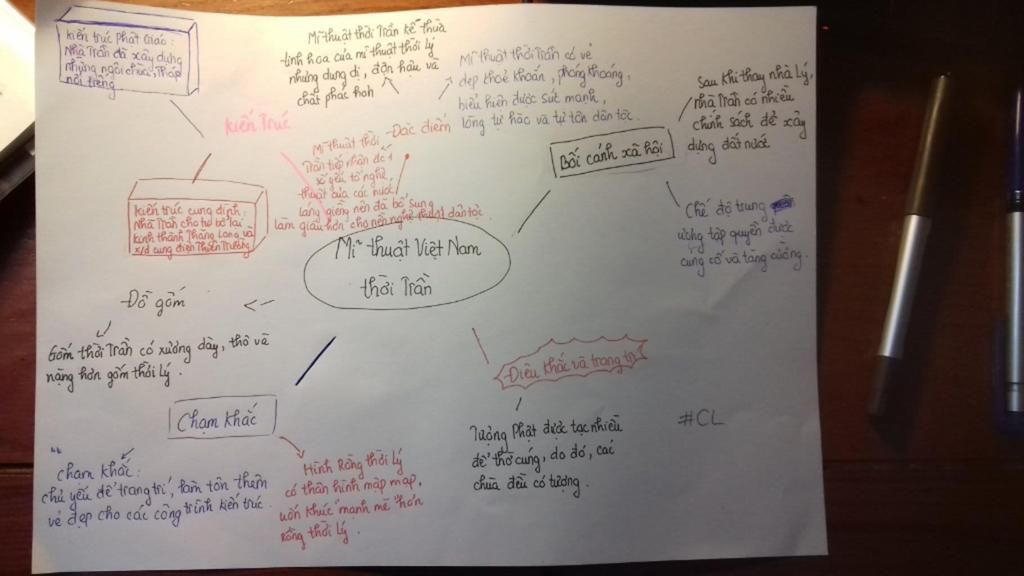 Kiến trúc Phật Giáo:
Nhà Trần đã xây dựng
những ngôi chùa, tháp
nổi tiếng
Kiến Trúc
Kiến trúc cung đình:
Nhà Trần cho tu bổ lại
kinh thành Thăng Long và
x/d cung điện Thiên Trường
Mĩ thuật thời Trần kế thừa
tinh hoa của mĩ thuật thời Lý
nhưng dung dị, đôn hậu và
chất phác hơn
Mĩ thuật thời Trần có vẻ
đẹp khoẻ khoắn, phóng khoáng,
biểu hiện được sức mạnh,
lòng tự hào và tự tôn dân tộc.
Đặc điểm
Mĩ thuật thời
Trần tiếp nhận đc 1
số yếu tố nghệ
thuật của các nước
láng giềng nên đã bổ sung
làm giàu hơn cho nền nghệ thuật dân tộc.
Bối cảnh xã hội
Sau khi thay nhà Lý,
nhà Trần có nhiều
chính sách để xây
dựng đất nước
Chế độ trung
ương tập quyền được
củng cố và tăng cường.
Mĩ thuật Việt Nam
thời Trần
Đồ gốm
Gốm thời Trần có xương dày, thô và
nặng hơn gốm thời Lý.
Chạm khắc
Chạm khắc:
chủ yếu để trang trí, làm tôn thêm
vẻ đẹp cho các công trình kiến trúc.
Hình Rồng thời Lý
có thân hình mập mạp,
uốn khúc mạnh mẽ hơn
Rồng thời Lý.
Điêu khắc và trang trí
Tượng Phật được tạc nhiều
để thờ cúng, do đó, các
chùa đều có tượng.
#CL